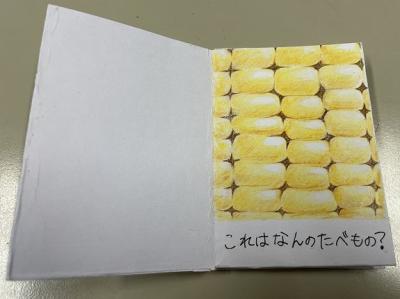 これはなんのたべもの?